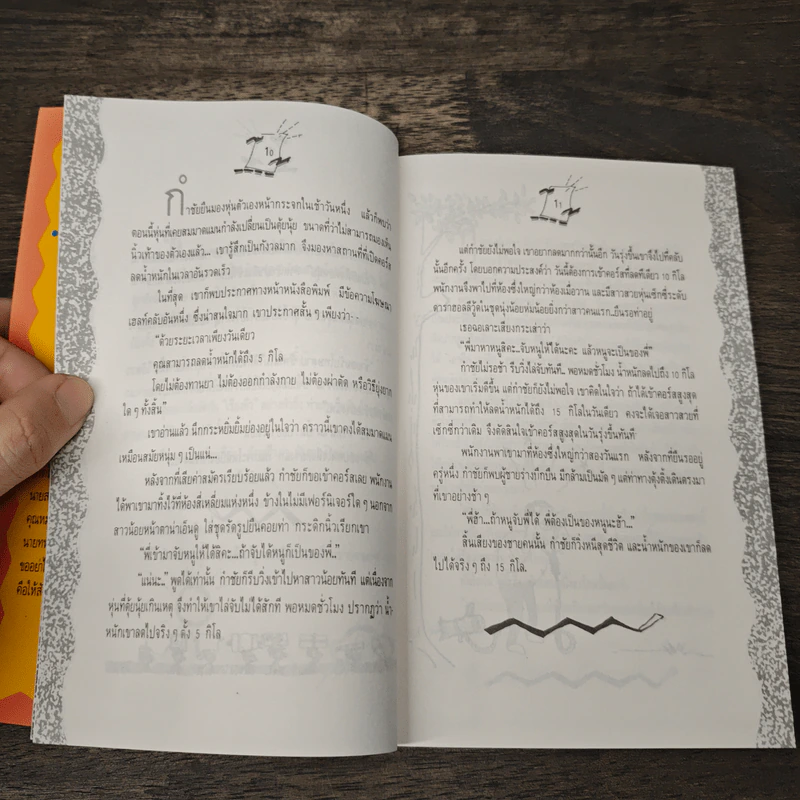 นายส
คุณห
นายท
ขออย่
คือให้สิ
10
กำชัยยืนมองหุ่นตัวเองหน้ากระจกในเช้าวันหนึ่ง แล้วก็พบว่า
ตอนนี้หุ่นที่เคยสมมาดแมนกำลังเปลี่ยนเป็นตุ้ยนุ้ย ขนาดที่ว่าไม่สามารถมองเห็น
นิ้วเท้าของตัวเองแล้ว... เขารู้สึกเป็นกังวลมาก จึงมองหาสถานที่ที่เปิดคอร์ส
ลดน้ำหนักในเวลาอันรวดเร็ว
ในที่สุด เขาก็พบประกาศทางหน้าหนังสือพิมพ์ มีข้อความโฆษณา
เฮลท์คลับอันหนึ่ง ซึ่งน่าสนใจมาก เขาประกาศสั้น ๆ เพียงว่า--
"ด้วยระยะเวลาเพียงวันเดียว
คุณสามารถลดน้ำหนักได้ถึง 5 กิโล
โดยไม่ต้องทานยา ไม่ต้องออกกำลังกาย ไม่ต้องผ่าตัด หรือวิธียุ่งยาก
ใด ๆ ทั้งสิ้น"
เขาอ่านแล้ว นึกกระหยิ่มยิ้มย่องอยู่ในใจว่า คราวนี้เขาคงได้สมมาดแมน
เหมือนสมัยหนุ่ม ๆ เป็นแน่...
หลังจากที่เสียค่าสมัครเรียบร้อยแล้ว กำชัยก็ขอเข้าคอร์สเลย พนักงาน
ได้พาเขามาทิ้งไว้ที่ห้องสี่เหลี่ยมแห่งหนึ่ง ข้างในไม่มีเฟอร์นิเจอร์ใด ๆ นอกจาก
สาวน้อยหน้าตาน่าเอ็นดู ใส่ชุดรัดรูปยืนคอยท่า กระดิกนิ้วเรียกเขา
"พี่เข้ามาจับหนูให้ได้สิคะ...ถ้าจับได้หนูก็เป็นของพี่.."
"แน่นะ.." พูดได้เท่านั้น กำชัยก็รีบวิ่งเข้าไปหาสาวน้อยทันที แต่เนื่องจาก
หุ่นที่ตุ้ยนุ้ยเกินเหตุ จึงทำให้เขาไล่จับไม่ได้สักที พอหมดชั่วโมง ปรากฏว่า น้ำ-
หนักเขาลดไปจริง ๆ ตั้ง 5 กิโล
11
แต่กำชัยยังไม่พอใจ เขาอยากลดมากกว่านั้นอีก วันรุ่งขึ้นเขาจึงไปที่คลับ
นั้นอีกครั้ง โดยบอกความประสงค์ว่า วันนี้ต้องการเข้าคอร์สที่ลดทีเดียว 10 กิโล
พนักงานจึงพาไปที่ห้องซึ่งใหญ่กว่าห้องเมื่อวาน และมีสาวสวยหุ่นเซ็กซี่ระดับ
ดาราฮอลลีวู้ดในชุดนุ่งน้อยห่มน้อยยิ่งกว่าสาวคนแรก..ยืนรอท่าอยู่
เธอฉอเลาะเสียงกระเส่าว่า
"พี่มาหาหนูสิคะ..จับหนูให้ได้นะคะ แล้วหนูจะเป็นของพี่"
กำชัยไม่รอช้า รีบวิ่งไล่จับทันที.. พอหมดชั่วโมง น้ำหนักลดไปถึง 10 กิโล
หุ่นของเขาเริ่มดีขึ้น แต่กำชัยก็ยังไม่พอใจ เขาคิดในใจว่า ถ้าได้เข้าคอร์สสูงสุด
ที่สามารถทำให้ลดน้ำหนักได้ถึง 15 กิโลในวันเดียว คงจะได้เจอสาวสวยที่
เซ็กซี่กว่าเดิม จึงตัดสินใจเข้าคอร์สสูงสุดในวันรุ่งขึ้นทันที
พนักงานพาเขามาที่ห้องซึ่งใหญ่กว่าสองวันแรก หลังจากที่ยืนรออยู่
ครู่หนึ่ง กำชัยก็พบผู้ชายร่างบึกบึน มีกล้ามเป็นมัด ๆ แต่ท่าทางตุ้งติ้งเดินตรงมา
ที่เขาอย่างช้า ๆ
"พี่ฮ้า...ถ้าหนูจับพี่ได้ พี่ต้องเป็นของหนูนะฮ้า..."
สิ้นเสียงของชายคนนั้น กำชัยก็วิ่งหนีสุดชีวิต และน้ำหนักของเขาก็ลด
ไปได้จริง ๆ ถึง 15 กิโล.